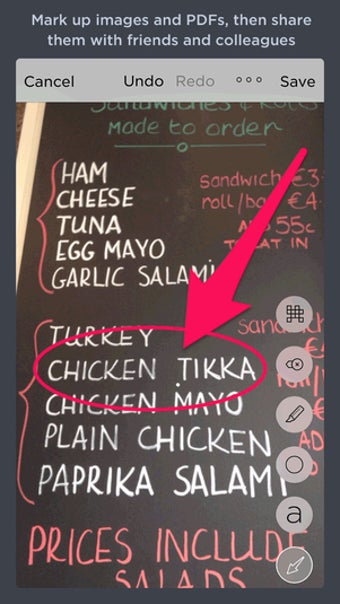 Mark up images and PDFs, then share
them with friends and colleagues
Cancel Undo Redo Save
Sandwiches & Rolls
Made to order
HAM
CHEESE
TUNA
EGG MAYO
GARLIC SALAMI
sandwich €3
roll/ba €4
55c
T EAT IN
TURKEY
CHICKEN TIKKA
CHICKEN MAYO
PLAIN CHICKEN
PAPRIKA SALAMI
PRICES INCLUDE
SALADS
a